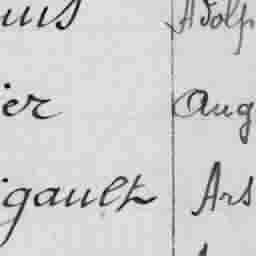 uis Adolp
ier Aug
igault Ars